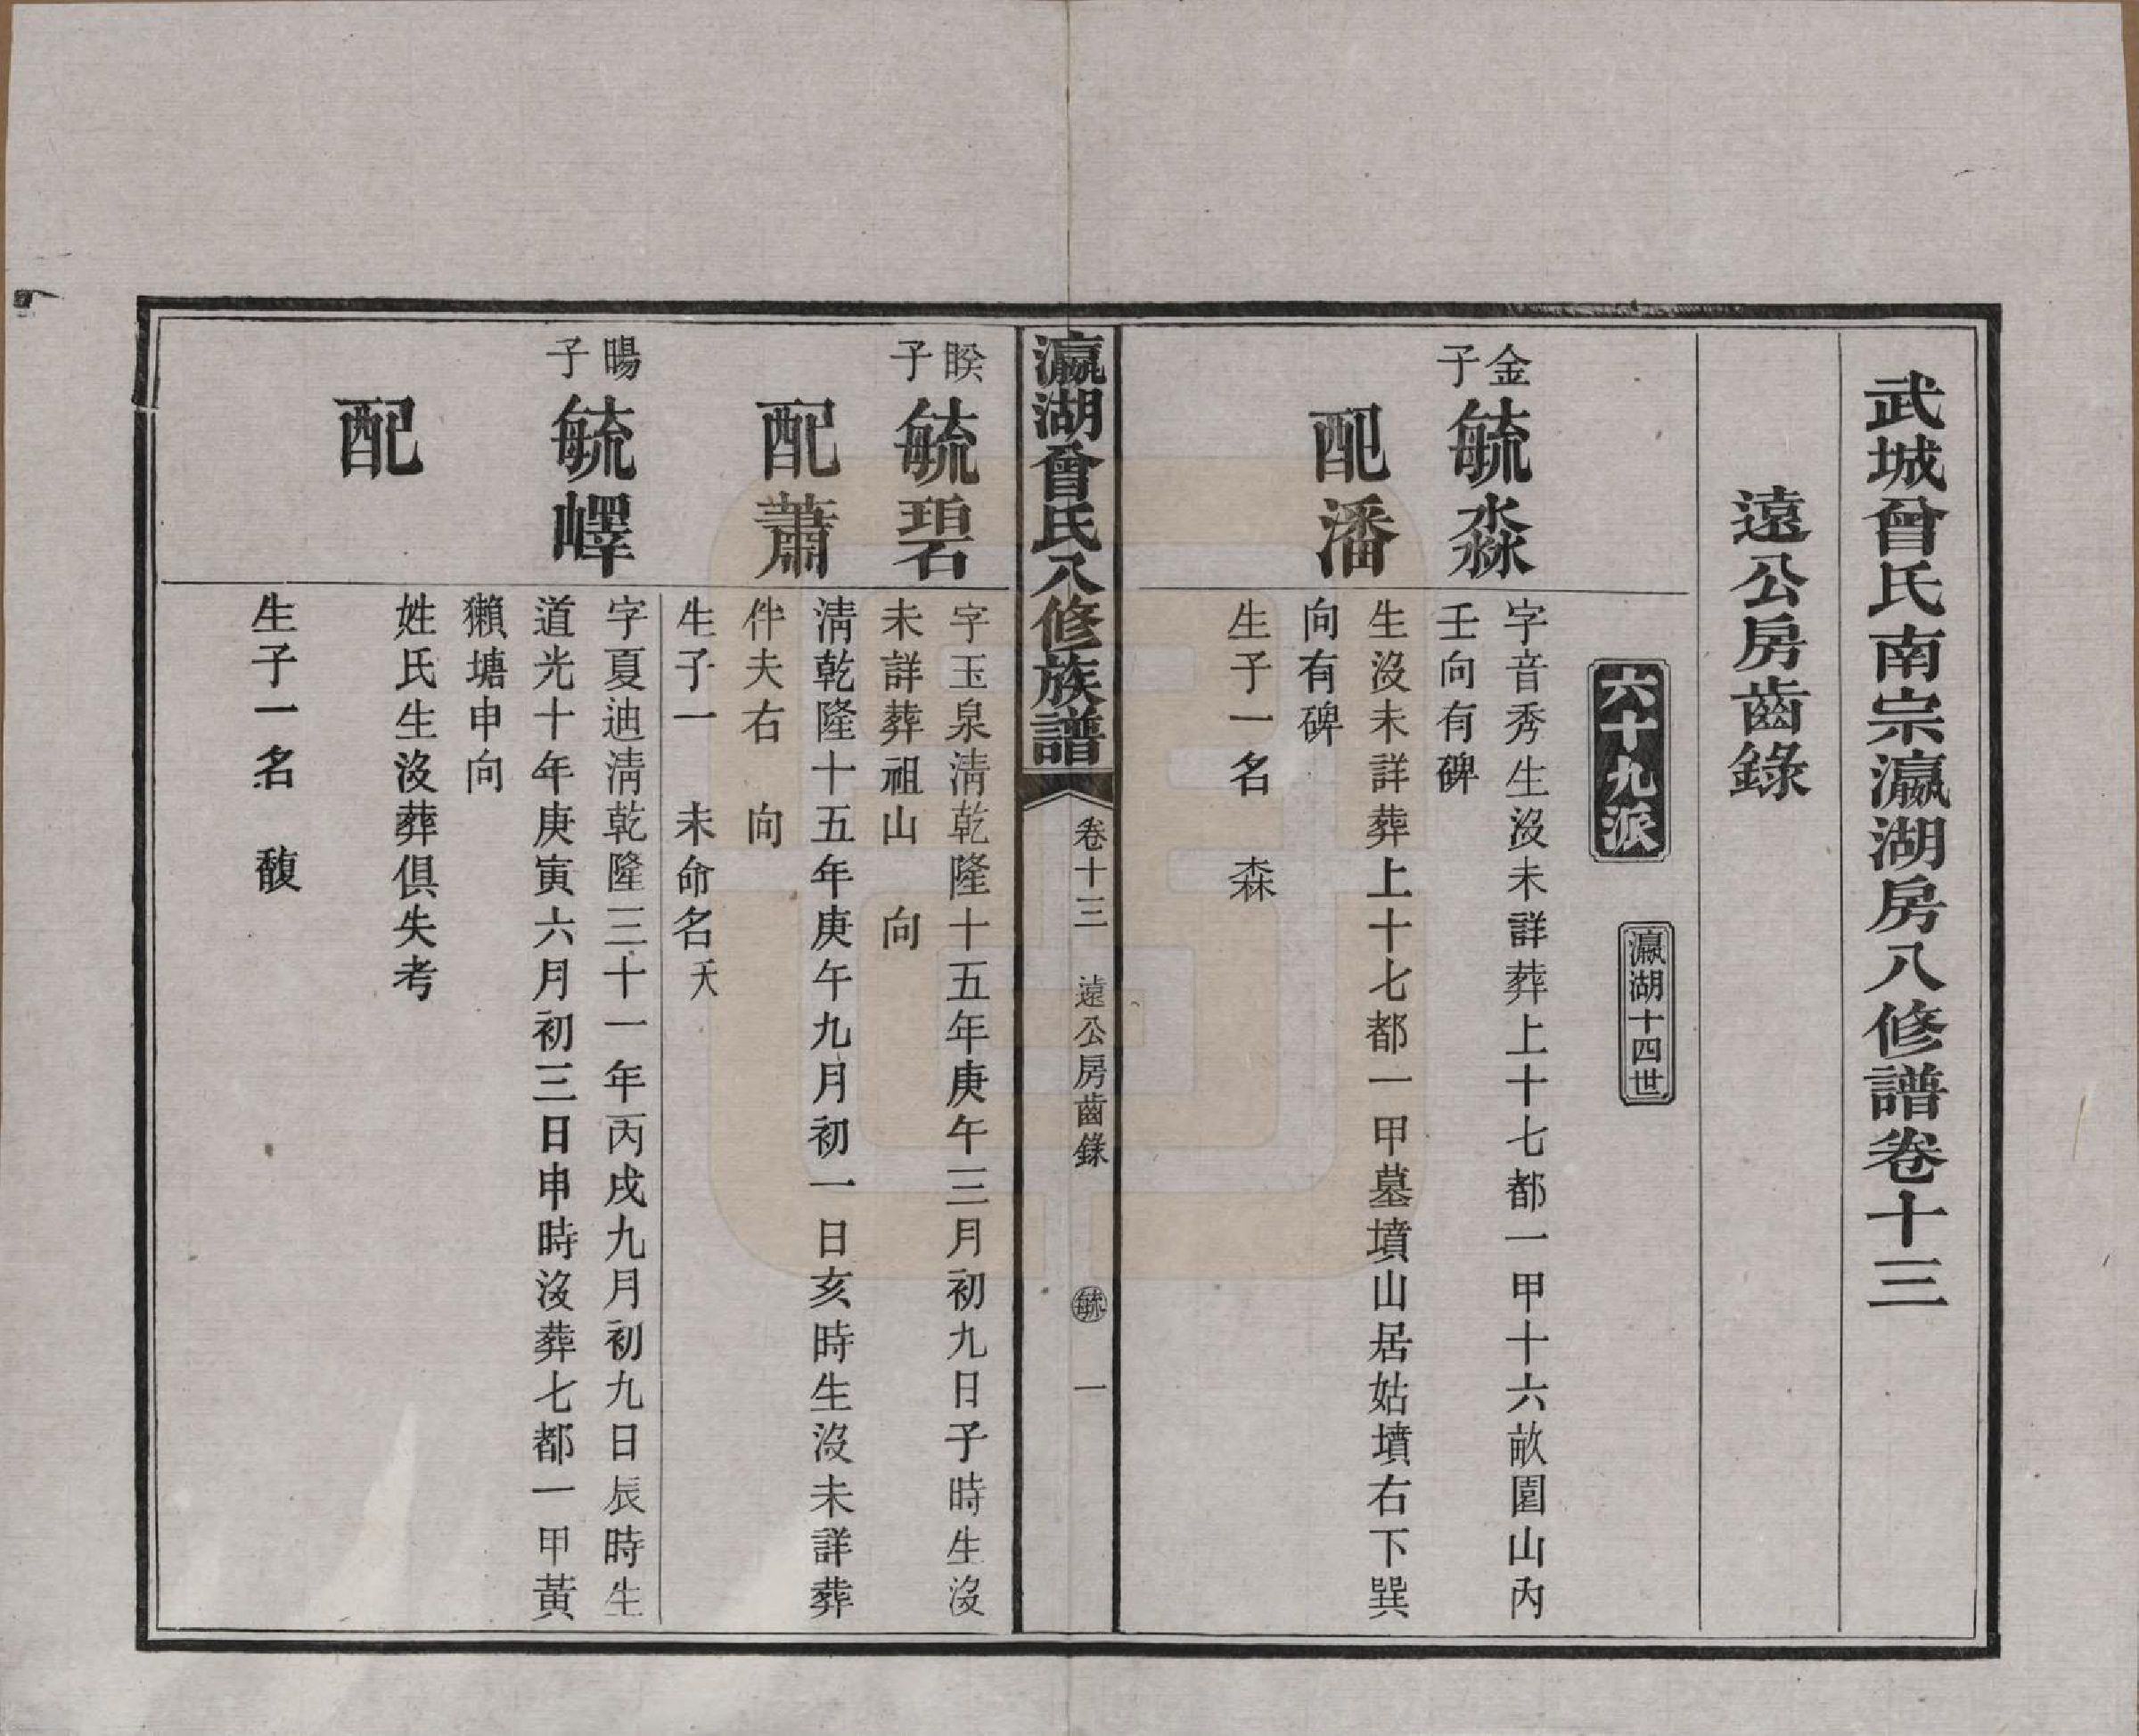 武城曾氏南宗瀛湖房八修譜卷十三
遠公房齒錄
六十九派
瀛湖十四世
金子
毓淼
字音秀生沒未詳葬上十七都一甲十六畝園山內
壬向有碑
配潘
生沒未詳葬上十七都一甲墓墳山居姑墳右下巽
向有碑
生子一名　森
瀛湖曾氏八修族譜
卷十三
遠公房齒錄
毓
一
睽子
毓碧
字玉泉淸乾隆十五年庚午三月初九日子時生沒
未詳葬祖山　向
配蕭
淸乾隆十五年庚午九月初一日亥時生沒未詳葬
伴夫右　向
生子一　未命名夭
暘子
毓嶧
字夏迪淸乾隆三十一年丙戌九月初九日辰時生
道光十年庚寅六月初三日申時沒葬七都一甲黃
獺塘申向
配
姓氏生沒葬俱失考
生子一名　馥